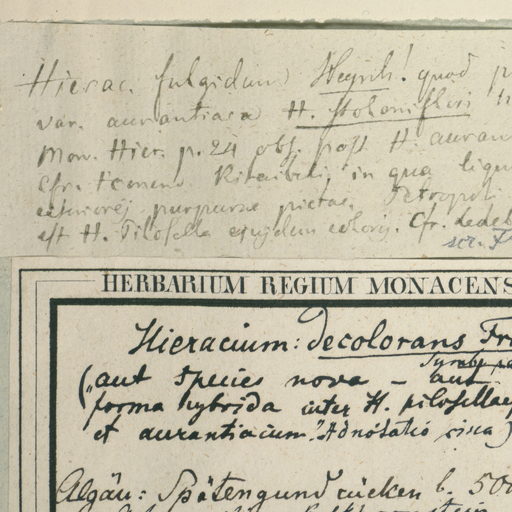 Hierac. fulgidum Heynh! quod p
var. aurantiaca H. stoloniflori
Mon. Hier. p. 24 obs. post H. auran
Cfr. Icones Kitaibelii, in qua ligu
exteriores purpurae pictae. Petropoli
est H. Pilosella ejusdem coloris. Cfr. Ledeb
HERBARIUM REGIUM MONACENS
Hieracium: decolorans Fr
("aut species nova – aut
forma hybrida inter H. pilosellae
et aurantiacum." Adnotatio
Algäu: Spätengundrücken b. 500